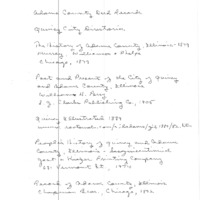 Adams County Deed Records
Quincy City Directories
The History of Adams County, Illinois - 1879
Murray, Williamson & Phelps
Chicago, 1879
Past and Present of the City of Quincy
and Adams County, Illinois
William H.
S. J. Clarke Publishing Co., 1905
Quincy Illustrated 1889
People's History of Quincy and Adams
County, Illinois - Sesquicentennial
Jost & Kiefer Printing Company
Vermont St.,
Record of Adams County, Illinois
Chapman Bros., Chicago, 1892